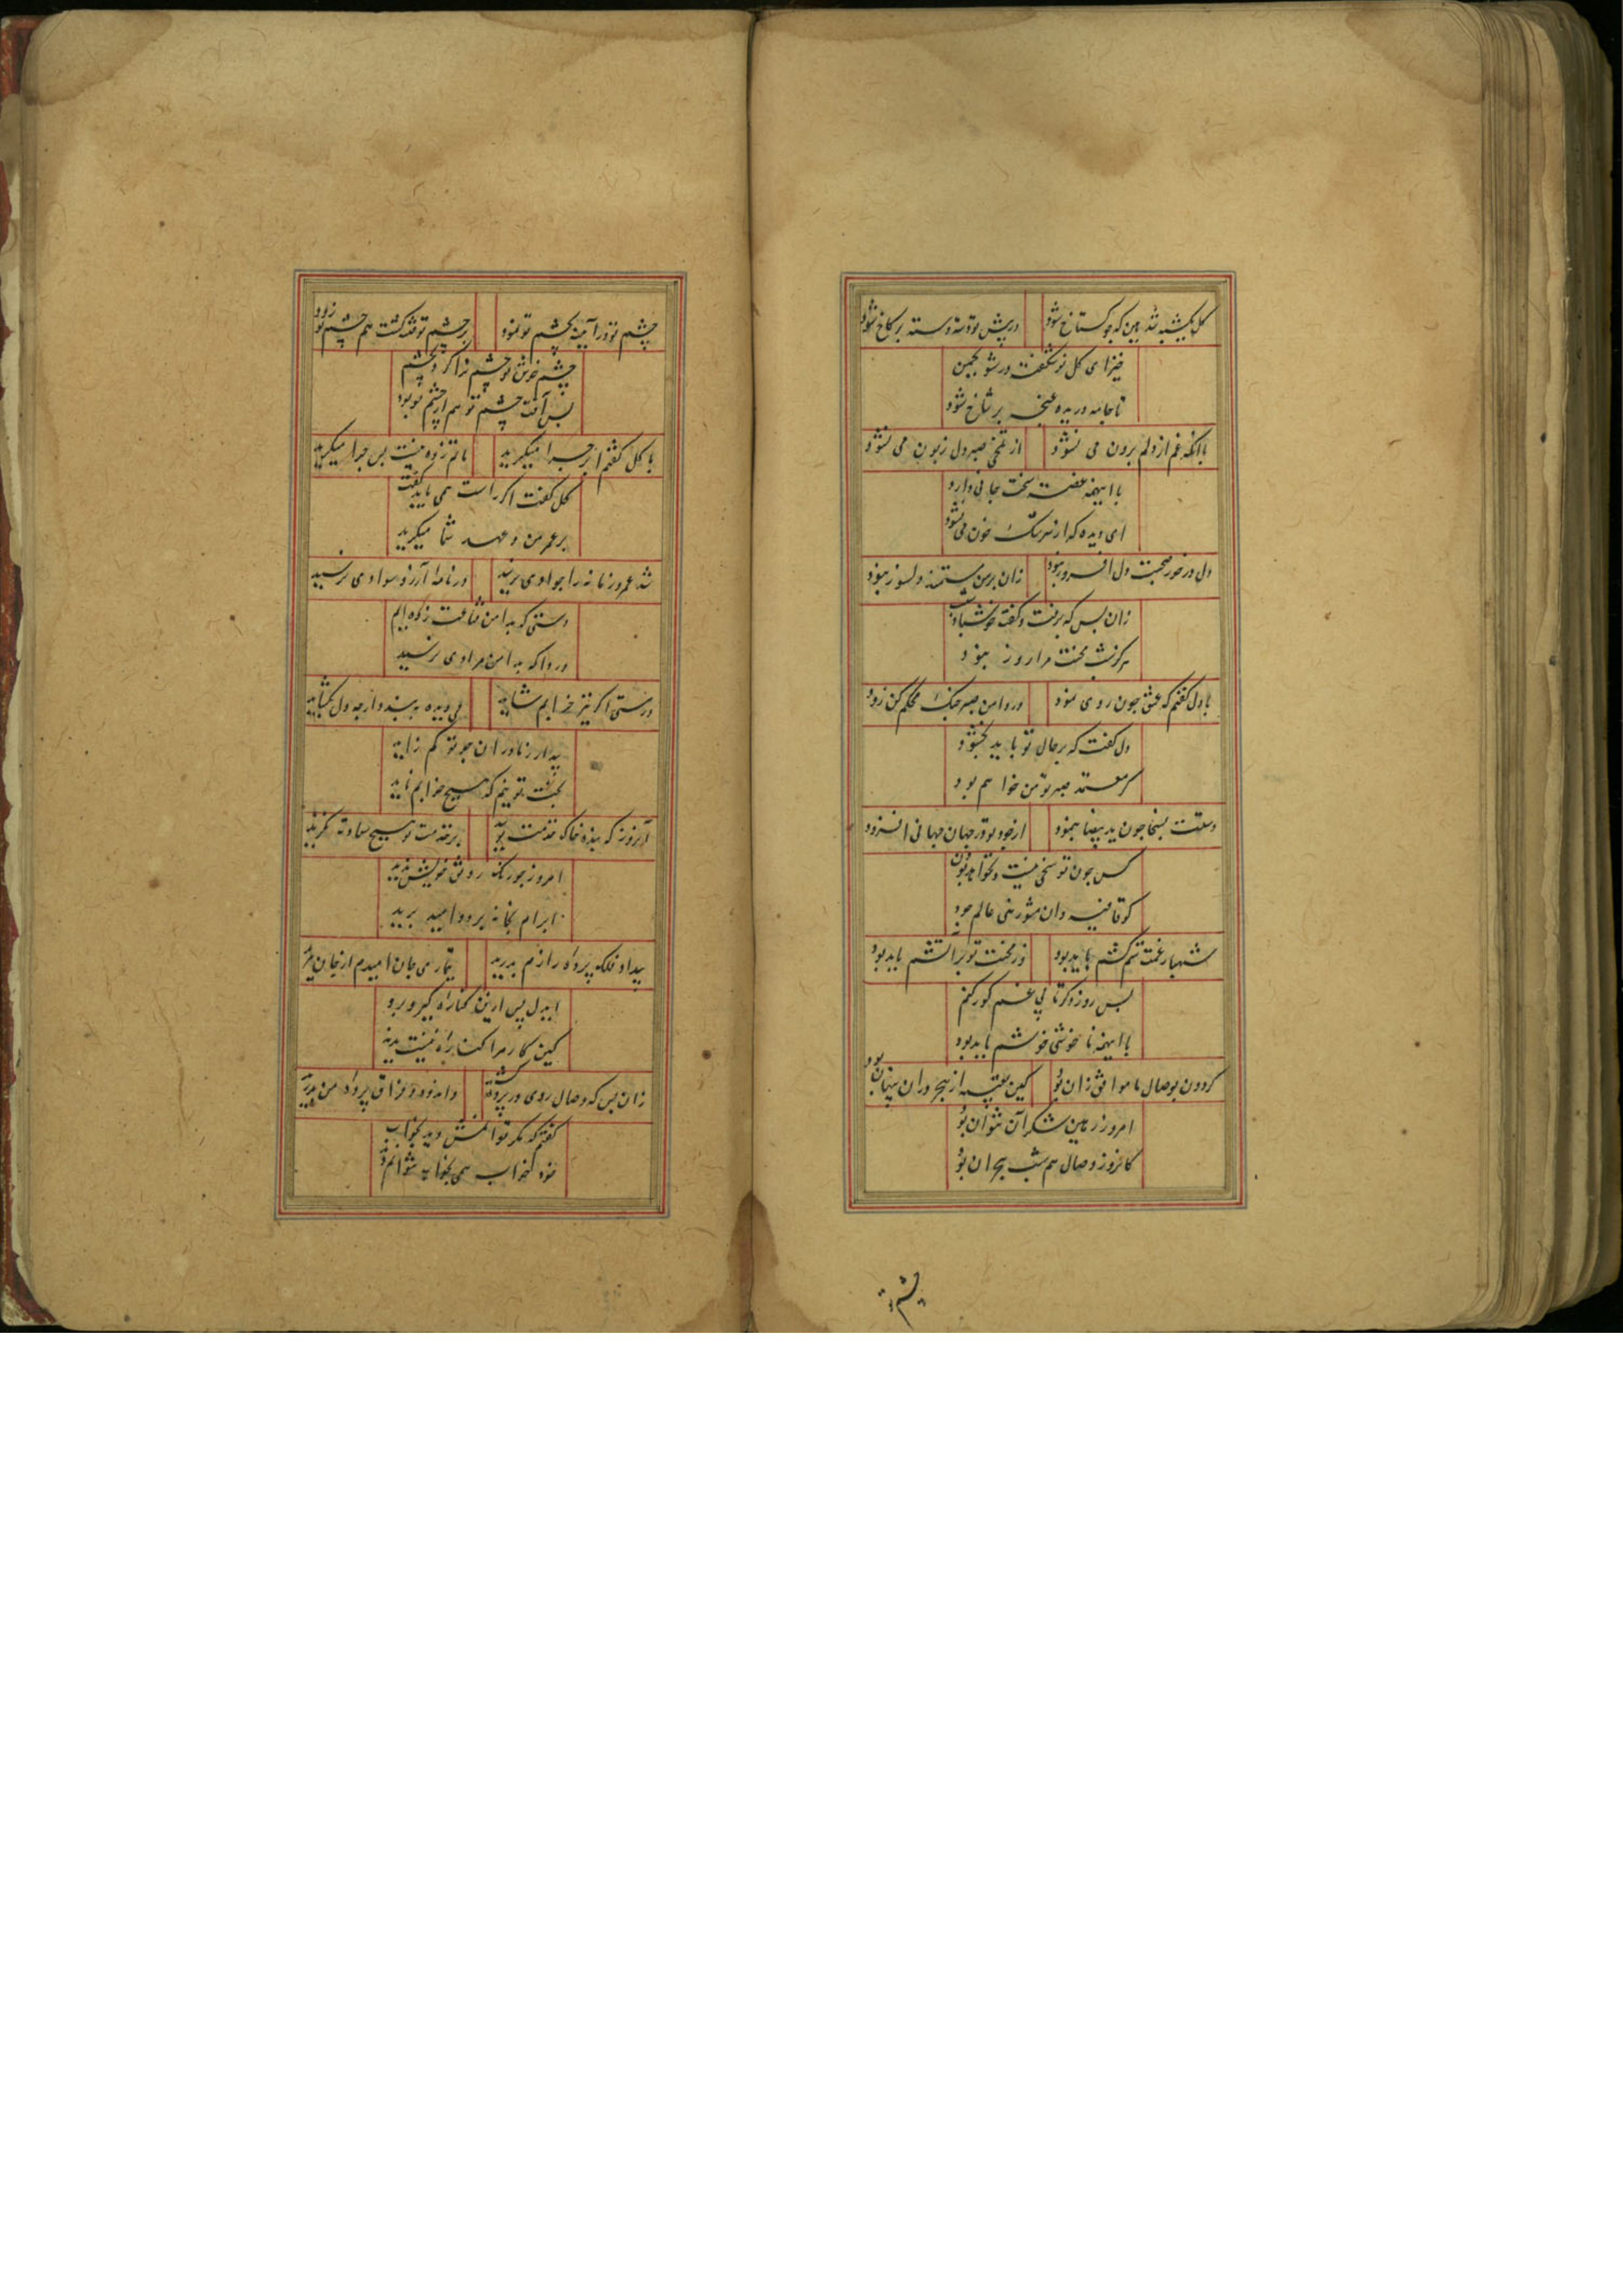 گل یکشبه شد ببین که چو گستاخ شود در پیش تو دسته دسته بر کاخ شود
خیز ای گل نو شکفت در شو بچمن
تا جامه دریده غنچه بر شاخ شود
با آنکه غم از دلم برون می نشود از تلخی صبر دل زبون می نشود
با اینهمه غصه سخت جانی دارد
ای دیده که از سرشک خون می نشود
دل در خور صحبت دل افروز نبود زان بر من مستمند دلسوز نبود
زان پس که برفت و گفت خوش باد شبت
هرگز شب محنت مرا روز نبود
با دل گفتم که عشق چون روی نمود در دامن صبر چنگ محکم کن زود
دل گفت که بر حال تو باید بخشود
گر معتمد صبر تو من خواهم بود
دستت بسخا چون ید بیضا بنمود از جود تو در جهان جهانی افزود
کس چون تو سخی نیست و نخواهد بودن
گو قافیه دال شو زهی عالم جود
شبها ز غمت ستم کشم باید بود وز محنت تو بر آتشم باید بود
پس روز دگر تا پی غم کور کنم
با اینهمه ناخوشی خوشم باید بود
گردون بوصال ما موافق زان بود کین تعبیه از هجر در ان پنهان بود
امروز زمین شکر آن نتوان بود
کانروز وصال هم شب هجران بود
چشم تو در آینه بچشم تو نمود بر چشم تو فتنه گشت هم چشم تو زود
چشم خوش تو چشم ترا کرد بچشم
پس آفت چشم تو هم از چشم تو بود
با گل گفتم ابر چرا میگرید ماتم زده نیست پس چرا میگرید
گل گفت اگر راست همی باید گفت
بر عمر من و عهد شما میگرید
شد عمر و زمانه را جوادی نرسید در نامه آرزو سوادی نرسید
دستی که بدامن قناعت زده ایم
دردا که بدامن مرادی نرسید
در مستی اگر نیز خرابم شاید کی دیده به بندد ار چه دل بگشاید
بیدار زمادران چو تو کم زاید
بخت تو نیم که هیچ خوابم ناید
آنروز که بنده خاک خدمت بوسید بر خدمت تو هیچ سعادت نگزید
امروز چو رنگ رونق خویش ندید
ابرام بخانه برد و امید برید
بیداد فلک پرده رازم بدرید تیمار می جان امیدم از جان ببرید
ای دل پس ازین کناره گیر و برو
کین کار مرا کناره نیست پدید
زان پس که وصال روی در پرده کشید و اندوه فراق پرده من بدرید
گفتم که مگر توانمش دید بخواب
خود خواب همی بخواب نتوانم دید
چشم تو